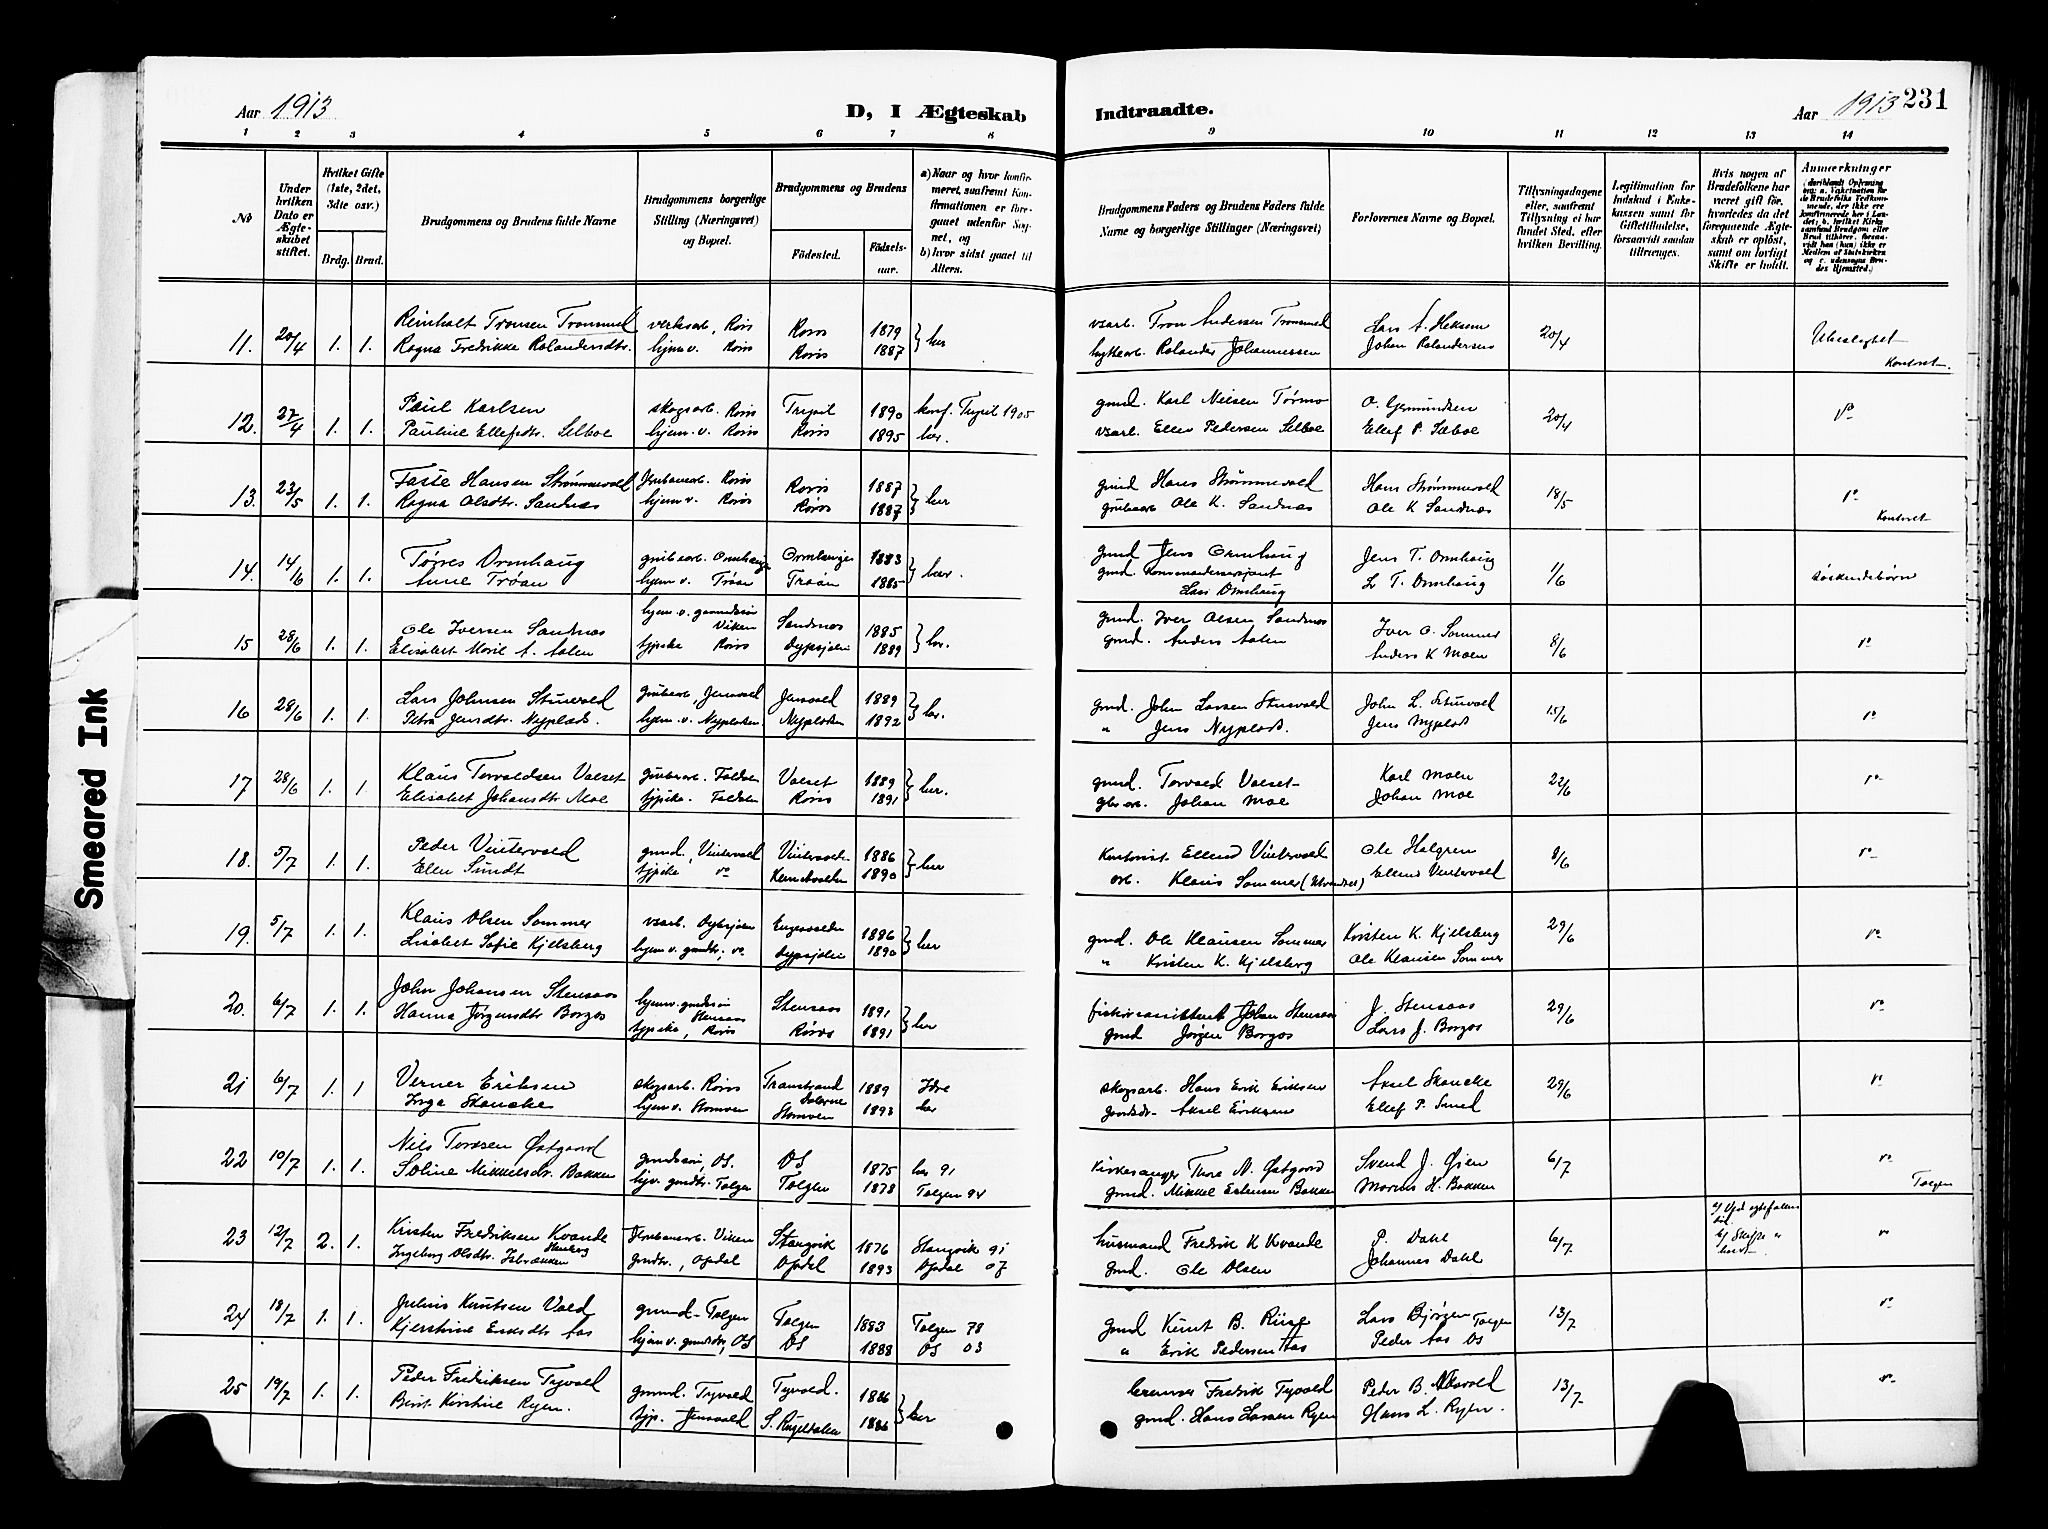 Aar 1913
D, I Ægteskab Indtraadte.
Aar 1913
231
1 2 3 4 5 6 7 8 9 10 11 12 13 14
No
Under hvilken Dato er Ægteskabet stiftet.
Hvilket Gifte (1ste, 2det, 3die osv.)
Brdg. Brud.
Brudgommens og Brudens fulde Navne
Brudgommens borgerlige Stilling (Næringsvei) og Bopæl.
Brudgommens og Brudens
Fødested. Fødselsaar.
a) Naar og hvor konfirmeret, saafremt Konfirmationen er foregaaet udenfor Sognet, og
b) hvor sidst gaaet til Alters.
Brudgommens Faders og Brudens Faders fulde Navne og borgerlige Stillinger (Næringsvei)
Forlovernes Navne og Bopæl.
Tillysningsdagene eller, saafremt Tillysning ei har fundet Sted, efter hvilken Bevilling.
Legitimation for Indskud i Enkekassen samt for Giftetilladelse, forsaavidt saadan tiltrænges.
Hvis nogen af Brudefolkene har været gift før, hvorledes da det foregaaende Ægteskab er opløst, samt om lovligt Skifte er holdt.
Anmærkninger
11. 20/4 1. 1. Reinholt Tronsen Tronmed verksarb, Røros Røros 1879 } her vsarb. Tron Andersen Tronsmed Lars A. Heksem 20/4 Ubeslegtet
Ragna Fredrikke Rolandersdtr. hjem v. Røros Røros 1887 hyttearb. Rolander Johannessen Johan Rolandersen Kontoret.
12. 27/4 1. 1. Paul Karlsen skogsarb. Røros Trysil 1890 konf. Trysil 1905 gmd. Karl Nielsen Tørmo O. Gjemundsen 20/4 do
Pauline Ellefsdtr. Selboe hjem. v. Røros Røros 1895 her. vsarb. Ellev Pedersen Selboe Ellef P. Selboe
13. 23/5 1. 1. Faste Hansen Strømmevold Grubearb. Røros Røros 1887 } her gmd Hans Strømmevold Hans Strømmevold 18/5 do
Ragna Olsdtr. Sandnæs hjem v. Røros Røros 1887 grubearb Ole K. Sandnæs Ole K Sandnæs Kontoret
14. 14/6 1. 1. Tøres Ormhaug grubearb. Ormhaugen Ormhaugen 1883 } her. gmd Jens Ormhaug Jens T. Ormhaug 1/6 søskendebørn
Anne Trøan hjem v. Trøan Trøan 1885 gmd Kommandersersjant Lars Ormhaug L. T. Ormhaug
15 28/6 1. 1. Ole Iversen Sandnæs hjem. v. gaardssøn Viken Sandnæs 1885 } her. gmd. Iver Olsen Sandnæs Iver O. Sommer 8/6 do
Elisabet Moril A. Aalen tjpike Røros Dypsjølien 1889 gmd. Anders Aalen Anders K Moen
16 28/6 1. 1. Lars Johnsen Stuevold Grubearb, Jensvold Jensvold 1889 } her. gmd. John Larsen Stuevold John L. Stuevold 15/6 do
Petra Jensdtr. Nyplads. hjem. v. Nypladsen Nypladsen 1892 " Jens Nyplads. Jens Nyplads
17 28/6 1. 1. Klaus Torvaldsen Valset Grubearb. Foldalen Valset 1889 } her. gmd. Torvald Valset Karl Moen 22/6 do
Elisabet Johansdtr. Moe tjpike. Foldalen Røros 1891 Johan Moe Johan Moe
18. 5/7 1. 1. Peder Vintervold gmd, Vintervold Vintervolden 1886 } her Kontorist Ellend Vintervold Ole Halgren 8/6 do
Ellen Sundt tjpike do 1890 arb. Klaus Sommer (Utvandret) Ellend Vintervold
19. 5/7 1. 1. Klaus Olsen Sommer vsarb. Dypsjølien Engesvolden 1886 } her gmd. Ole Klausen Sommer Kristen K. Kjelsberg 29/6 do
Lisabet Sofie Kjelsberg hjem v. gmdtr, do Dypsjølien 1890 " Kristen K. Kjelsberg Ole Klausen Sommer
20. 6/7 1. 1. John Johansen Stensaas hjem v. gmdssøn Stensaas Stensaas 1891 } her fiskeriassistent Johan Stensaas J. Stensaas 29/6 do
Hanna Jørgensdtr Borgos tjpike, Røros Røros 1891 gmd Jørgen Borgos Lars J. Borgos
21 6/7 1. 1 Verner Eriksen skogsarb. Røros Transtrand Dalarne 1889 Idre skogsarb. Hans Erik Eriksen Aksel Skancke 29/6 do
Inga Skancke hjem v. Stormoen Stormoen 1893 her Aksel Eriksen Ellef P. Sund
22 10/7 1. 1. Nils Toresen Østgaard gmdssøn, OS. OS 1875 her 91 Kirkesanger Tore N. Østgaard Svend J. Øien 6/7 do
Soline Mikkelsdtr. Bakken hjv. gmdtr. Tolgen Tolgen 1878 Tolgen 94 gmd. Mikkel Estensen Bakken Marius H. Bakken Tolgen
23 12/7 2. 1. Kristen Fredriksen Kvande Jernbanearb. Viken Stangvik 1876 Stangvik 91 husmand Fredrik K Kvande P. Dahl 6/7 a/ Ved ægtefællens død. b/ Skifte holdt. do
Ingeborg Olsdtr. gmdtr., Opdal Opdal 1893 Opdal 07 gmd. Ole Olsen Johannes Dahl
24 18/7 1. 1. Julius Knutsen Vold gmand Tolgen Tolgen 1883 Tolgen 78 gmd Knut B. Riise Lars Bjørgen Tolgen 13/7 do
Kjerstine Eriksdtr Aas hjem v. gmdsdtr, OS OS 1888 OS 03 " Erik Pedersen Aas Peder Aas Os
25 19/7 1. 1. Peder Fredriksen Tyvold gmand. Tyvold Tyvold. 1886 } her Fredrik Tyvold Peder B. 13/7 do
Berit Kirstine Ryen. tjp. Jensvold S. Rugeldalen 1886 gmd. Hans Larsen Ryen Hans L. Ryen.
Smeared Ink